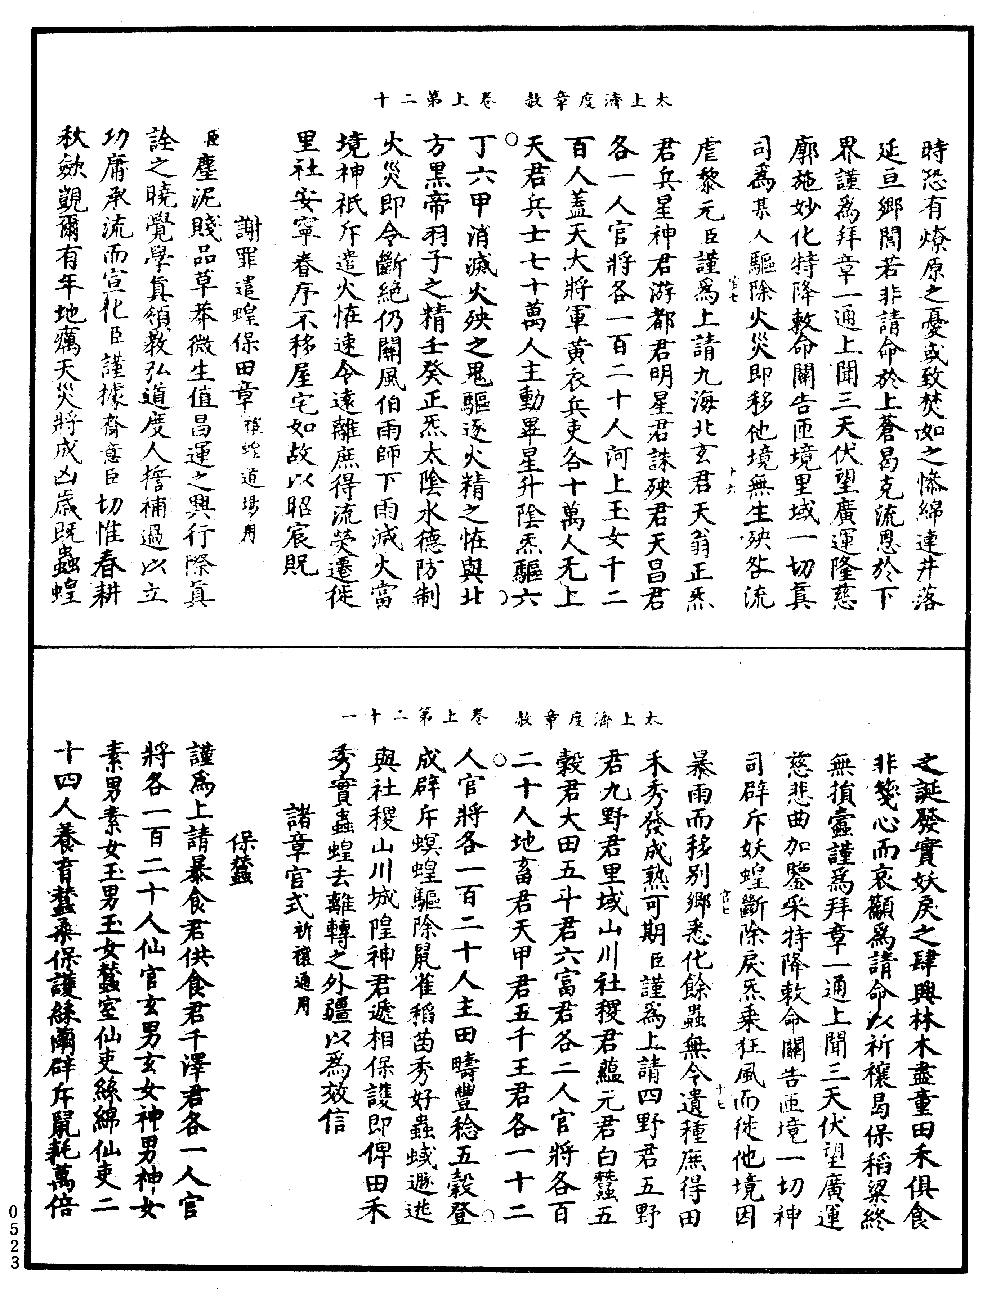 太上濟度章赦　卷上第二十
時恐有燎原之憂或致焚如之慘綿連井落
延亘鄉閭若非請命於上蒼曷克流恩於下
界謹為拜章一通上聞三天伏望廣運隆慈
廓施妙化特降敕命關告匝境里域一切真
司為某人驅除火災即移他境無生殃咎流
虐黎元臣謹為上請九海北玄君天翁正炁
君兵星神君游都君明星君誅殃君天昌君
各一人官將各一百二十人河上玉女千二
百人蓋天大將軍黃衣兵吏各十萬人无上
天君兵士七十萬人主動畢星升陰炁驅六
丁六甲消滅火殃之鬼驅逐火精之怪與北
方黑帝羽子之精壬癸正炁太陰水德防制
火災即令斷絕仍關風伯雨師下雨滅火當
境神祇斥遣火怪速令遠離庶得流熒還徙
里社安寧眷序不移屋宅如故以昭宸貺
謝罪遣蝗保田章禳蝗道場用
臣塵泥賤品草莽微生值昌運之興行際真
詮之曉覺學真領教弘道度人誓補過以立
功庸承流而宣化臣謹據齋意臣切惟春耕
秋斂覬爾有年地癘天災將成凶歲既蟲蝗
太上濟度章赦　卷上第二十一
之誕發實妖戾之肆興林木盡童田禾俱食
非箋心而哀籲為請命以祈禳曷保稻粱終
無損蠹謹為拜章一通上聞三天伏望廣運
慈悲曲加鑒采特降敕命關告匝境一切神
司辟斥妖蝗斷除戾炁乘狂風而徙他境因
暴雨而移別鄉悉化餘蟲無令遺種庶得田
禾秀發成熟可期臣謹為上請四野君五野
君九野君里域山川社稷君蘊元君白蠶五
穀君大田五斗君六富君各二人官將各百
二十人地畜君天甲君五千王君各一十二
人官將各一百二十人主田疇豐稔五穀登
成辟斥螟蝗驅除鼠雀稻苗秀好蟲蜮遯逃
與社稷山川城隍神君遞相保護即俾田禾
秀實蟲蝗去離轉之外疆以為效信
諸章官式祈禳通用
保蠶
謹為上請暴食君供食君千澤君各一人官
將各一百二十人仙官玄男玄女神男神女
素男素女玉男玉女蠶室仙吏絲綿仙吏二
十四人養育蠶桑保護絲繭辟斥鼠耗萬倍
0523